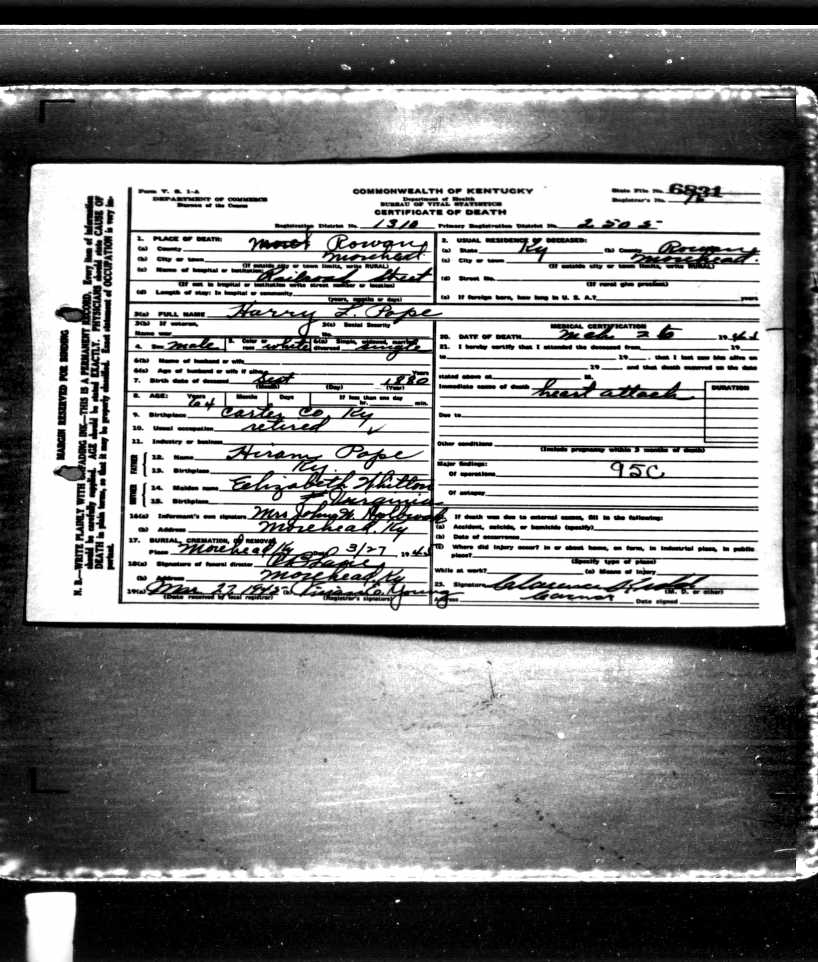 Form V. S. 1-A
DEPARTMENT OF COMMERCE
Bureau of the Census
COMMONWEALTH OF KENTUCKY
Department of Health
BUREAU OF VITAL STATISTICS
CERTIFICATE OF DEATH
State File No. 6831
Registrar's No.
Registration District No. 1310 Primary Registration District No. 2505
1. PLACE OF DEATH:
(a) County Rowan
(b) City or town Morehead
(If outside city or town limits, write RURAL)
(c) Name of hospital or institution: Railroad Street
(If not in hospital or institution write street number or location)
(d) Length of stay: In hospital or community
(years, months or days)
2. USUAL RESIDENCE OF DECEASED:
(a) State Ky (b) County Rowan
(c) City or town Morehead.
(If outside city or town limits, write RURAL)
(d) Street No.
(If rural give precinct)
(e) If foreign born, how long in U. S. A.? years
3(a) FULL NAME Harry L. Pope
3(b) If veteran, 3(c) Social Security
Name war No.
4. Sex male 5. Color or race white 6(a) Single, widowed, married, divorced single
6(b) Name of husband or wife
6(c) Age of husband or wife if alive Years
7. Birth date of deceased Sept 1880
(Month) (Day) (Year)
8. AGE: Years 64 Months Days If less than one day
hr. min.
9. Birthplace Carter Co. Ky
10. Usual occupation retired
11. Industry or business
FATHER
12. Name Hiram Pope
13. Birthplace Ky.
MOTHER
14. Maiden name Eelizabeth Whitton
15. Birthplace Virginia
16(a) Informant's own signature Mrs John W. Holbrook
(b) Address Morehead, Ky
17. BURIAL, CREMATION, OR REMOVAL
Place Morehead Ky 3/27 1945
18(a) Signature of funeral director
(b) Address Morehead, Ky
19(a) Mar 27 1945 (b) Young
(Date received by local registrar) (Registrar's signature)
MEDICAL CERTIFICATION
20. DATE OF DEATH Mch 26 1945
21. I hereby certify that I attended the deceased from 19
to 19 , that I last saw him alive on
19 , and that death occurred on the date
stated above at M.
Immediate cause of death heart attack
DURATION
Due to
Other conditions
(Include pregnancy within 3 months of death)
Major findings:
Of operations 95C
Of autopsy
22. If death was due to external causes, fill in the following:
(a) Accident, suicide, or homicide (specify)
(b) Date of occurrence
(c) Where did injury occur? in or about home, on farm, in industrial place, in public
place?
(Specify type of place)
While at work? (e) Means of injury
23. Signature Clarence
(M. D. or other)
Address Date signed
MARGIN RESERVED FOR BINDING
N. B.—WRITE PLAINLY WITH UNFADING INK—THIS IS A PERMANENT RECORD. Every item of information
should be carefully supplied. AGE should be stated EXACTLY. PHYSICIANS should state CAUSE OF
DEATH in plain terms, so that it may be properly classified. Exact statement of OCCUPATION is very im-
portant.